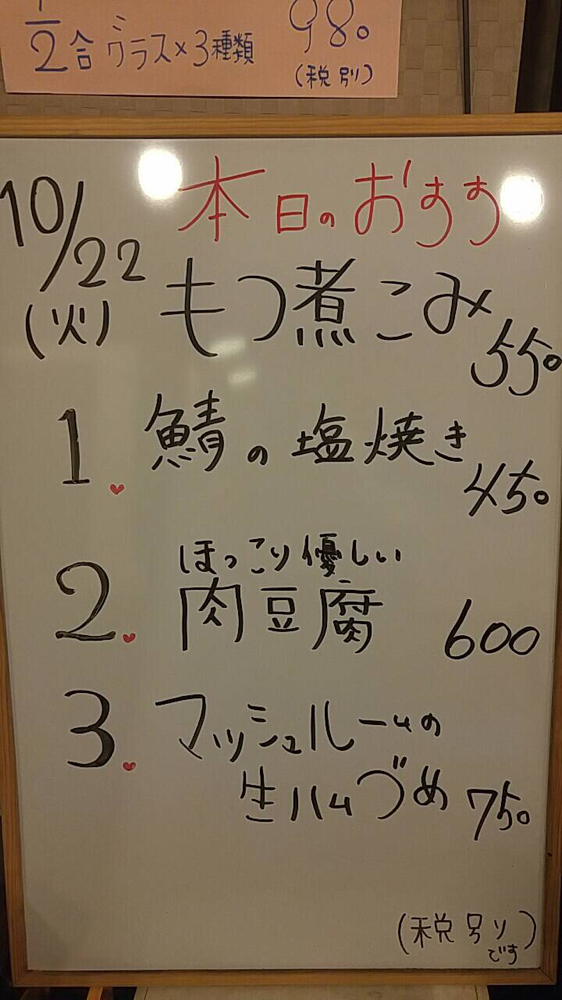 1/2合グラス×3種類 980
(税別)
10/22 本日のおすすめ
(火) もつ煮こみ 550
1. 鯖の塩焼き 450
ほっこり優しい
2. 肉豆腐 600
3. マッシュルームの
生ハムづめ 750
(税別り)
です